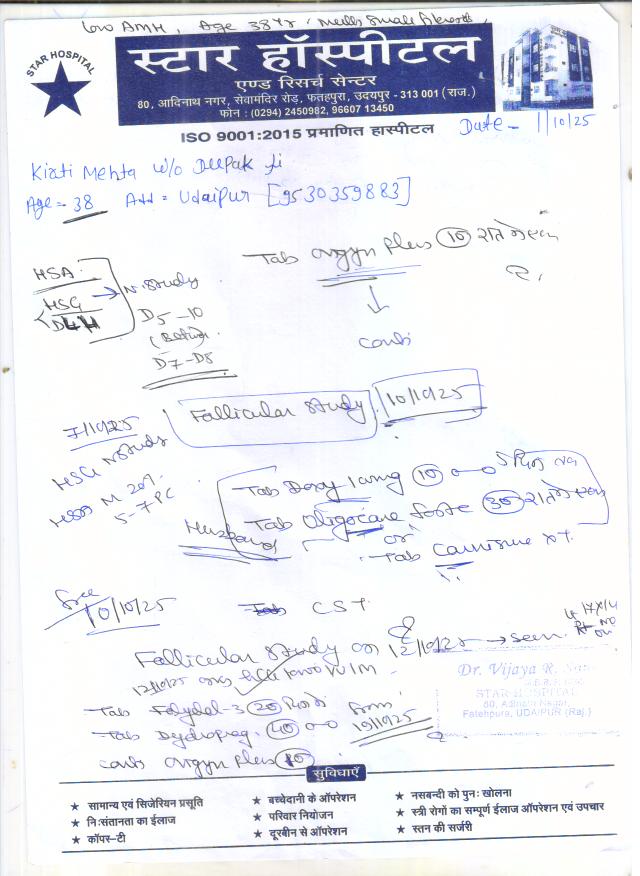 Low AMH, Age 38 yr,
STAR HOSPITAL
स्टार हॉस्पीटल
एण्ड रिसर्च सेन्टर
80, आदिनाथ नगर, सेवामंदिर रोड़, फतहपुरा, उदयपुर - 313 001 (राज.)
फोन : (0294) 2450982, 96607 13450
ISO 9001:2015 प्रमाणित हास्पीटल
Date - 1/10/25
Kirti Mehta w/o Deepak ji
Age - 38 Add = Udaipur [9530359883]
Tab ovogyn Plus 10
HSA
HSG → N. Study
D5-10
D7-D8
conti
Follicular Study 10/10/25
7/10/25
HSG N Study
HSA M 20%
5-7 PC
Tab Doxy 100mg 10
Tab Oligocare forte 30
or
Tab
Husband
See 10/10/25
CST
Follicular Study on 12/10/25 → seen
12/10/25
Tab 20
Tab Dydroprog. 40 from 19/10/25
conti ovogyn Plus 10
Dr. Vijaya R.
STAR HOSPITAL
80, Adinath Nagar,
Fatehpura, UDAIPUR (Raj.)
सुविधाएँ
★ सामान्य एवं सिजेरियन प्रसूति
★ बच्चेदानी के ऑपरेशन
★ नसबन्दी को पुनः खोलना
★ निःसंतानता का ईलाज
★ परिवार नियोजन
★ स्त्री रोगों का सम्पूर्ण ईलाज ऑपरेशन एवं उपचार
★ कॉपर-टी
★ दूरबीन से ऑपरेशन
★ स्तन की सर्जरी